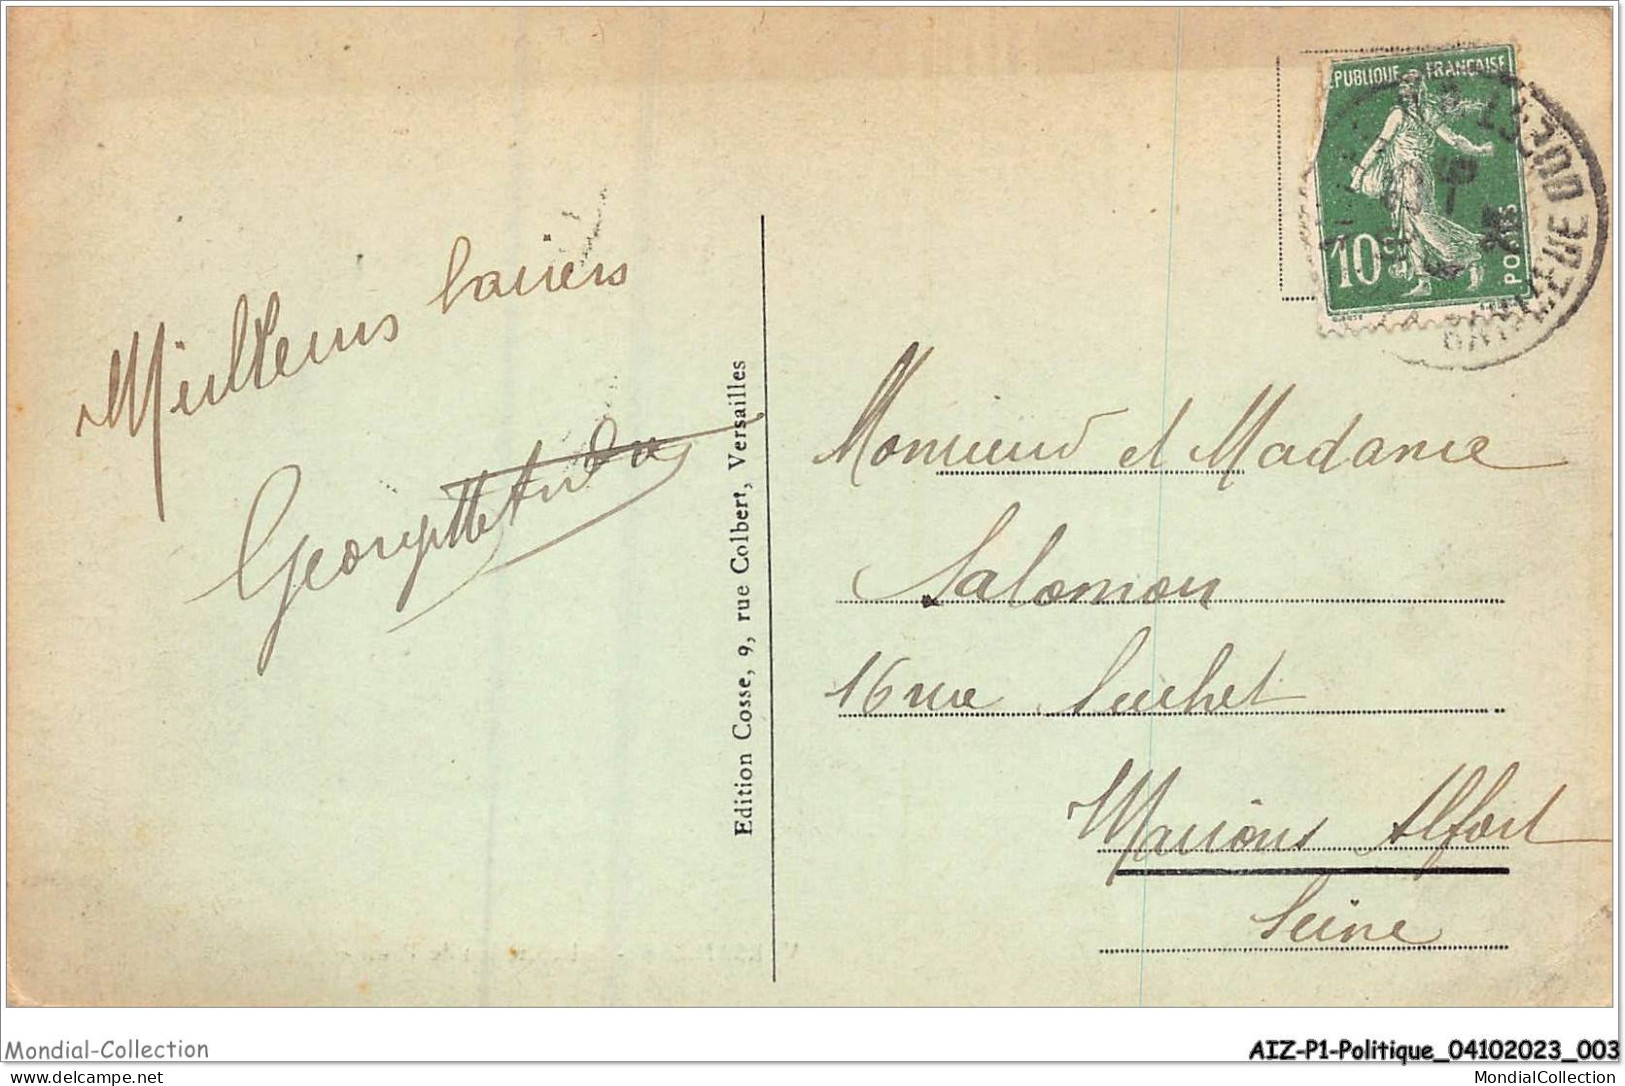 RÉPUBLIQUE FRANÇAISE
10
POSTES
BANLIEUE OUEST
Meilleurs baisers
Georgette
Edition Cosse, 9, rue Colbert, Versailles
Monsieur et Madame
Salomon
16 rue Suchet
Maisons Alfort
Seine
Mondial-Collection
AIZ-P1-Politique_04102023_003
MondialCollection
MondialCollection